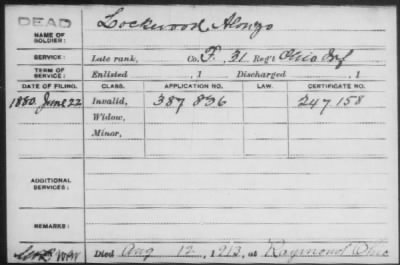 DEAD
NAME OF SOLDIER: Lockwood Alonzo
SERVICE: Late rank, Co. F, 31 Reg't Ohio Inf
TERM OF SERVICE: Enlisted , 1 Discharged , 1
DATE OF FILING. CLASS. APPLICATION NO. LAW. CERTIFICATE NO.
1880. June 22 Invalid, 387 836 247 158
Widow,
Minor,
ADDITIONAL SERVICES:
REMARKS:
Died Aug 12, 1913, at Raymond Ohio